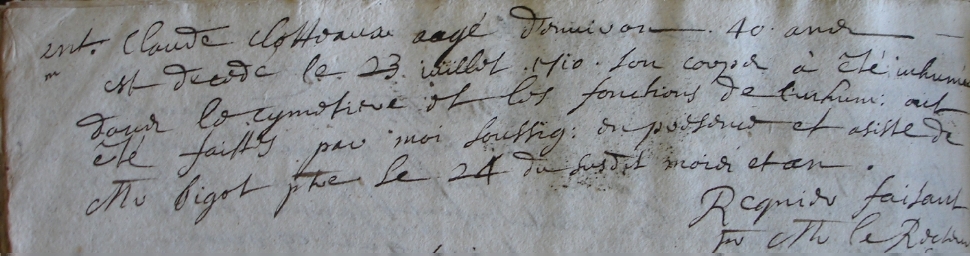 ent. Claude Clotteaux aagé d'environ 40 ans
m est decede le 23 juillet 1710. son corps a été inhumé
dans le cymetiere et les fonctions de l'inhum: ont
été faittes par moi soussig: en presence et asisté de
Mr Pigot ptre le 24 du susdit mois et an.
Regnier faisant
pr Mr le Recteur